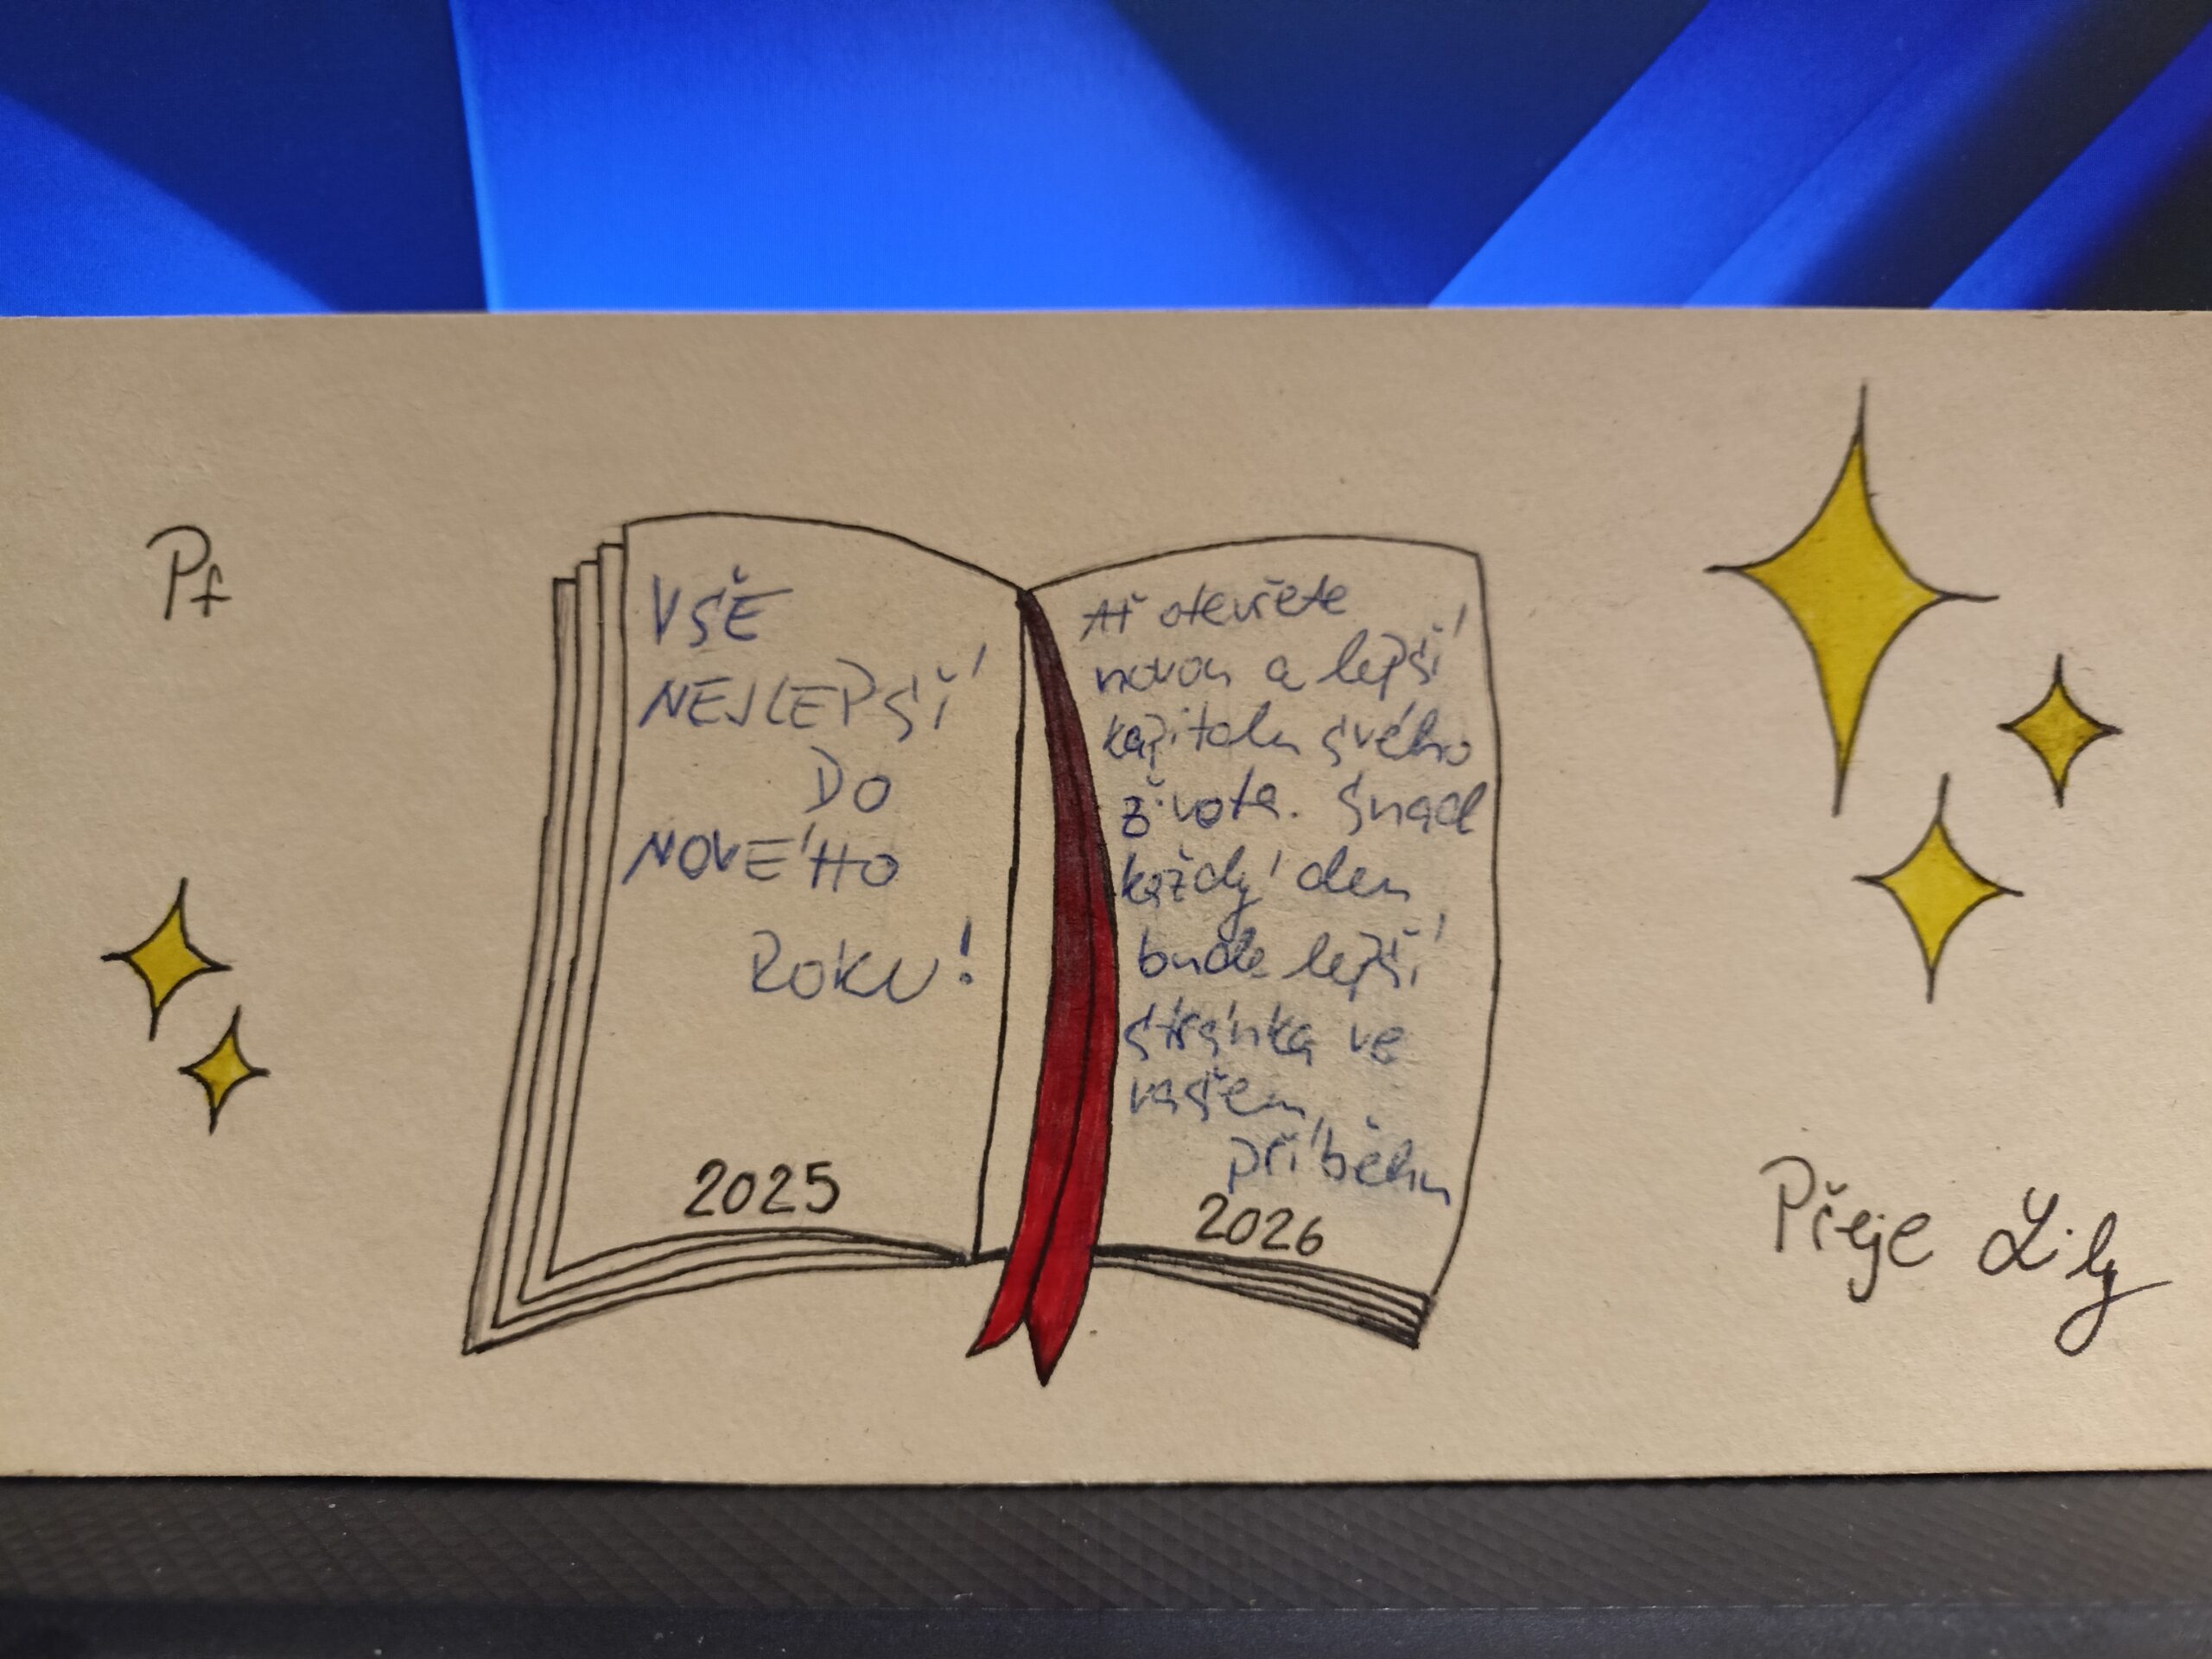 Pf
VŠE
NEJLEPŠÍ
DO
NOVÉHO
ROKU!
2025
Ať otevřete
novou a lepší
kapitolu svého
života. Snad
každý den
bude lepší
stránka ve
vašem
příběhu
2026
Přeje Lily